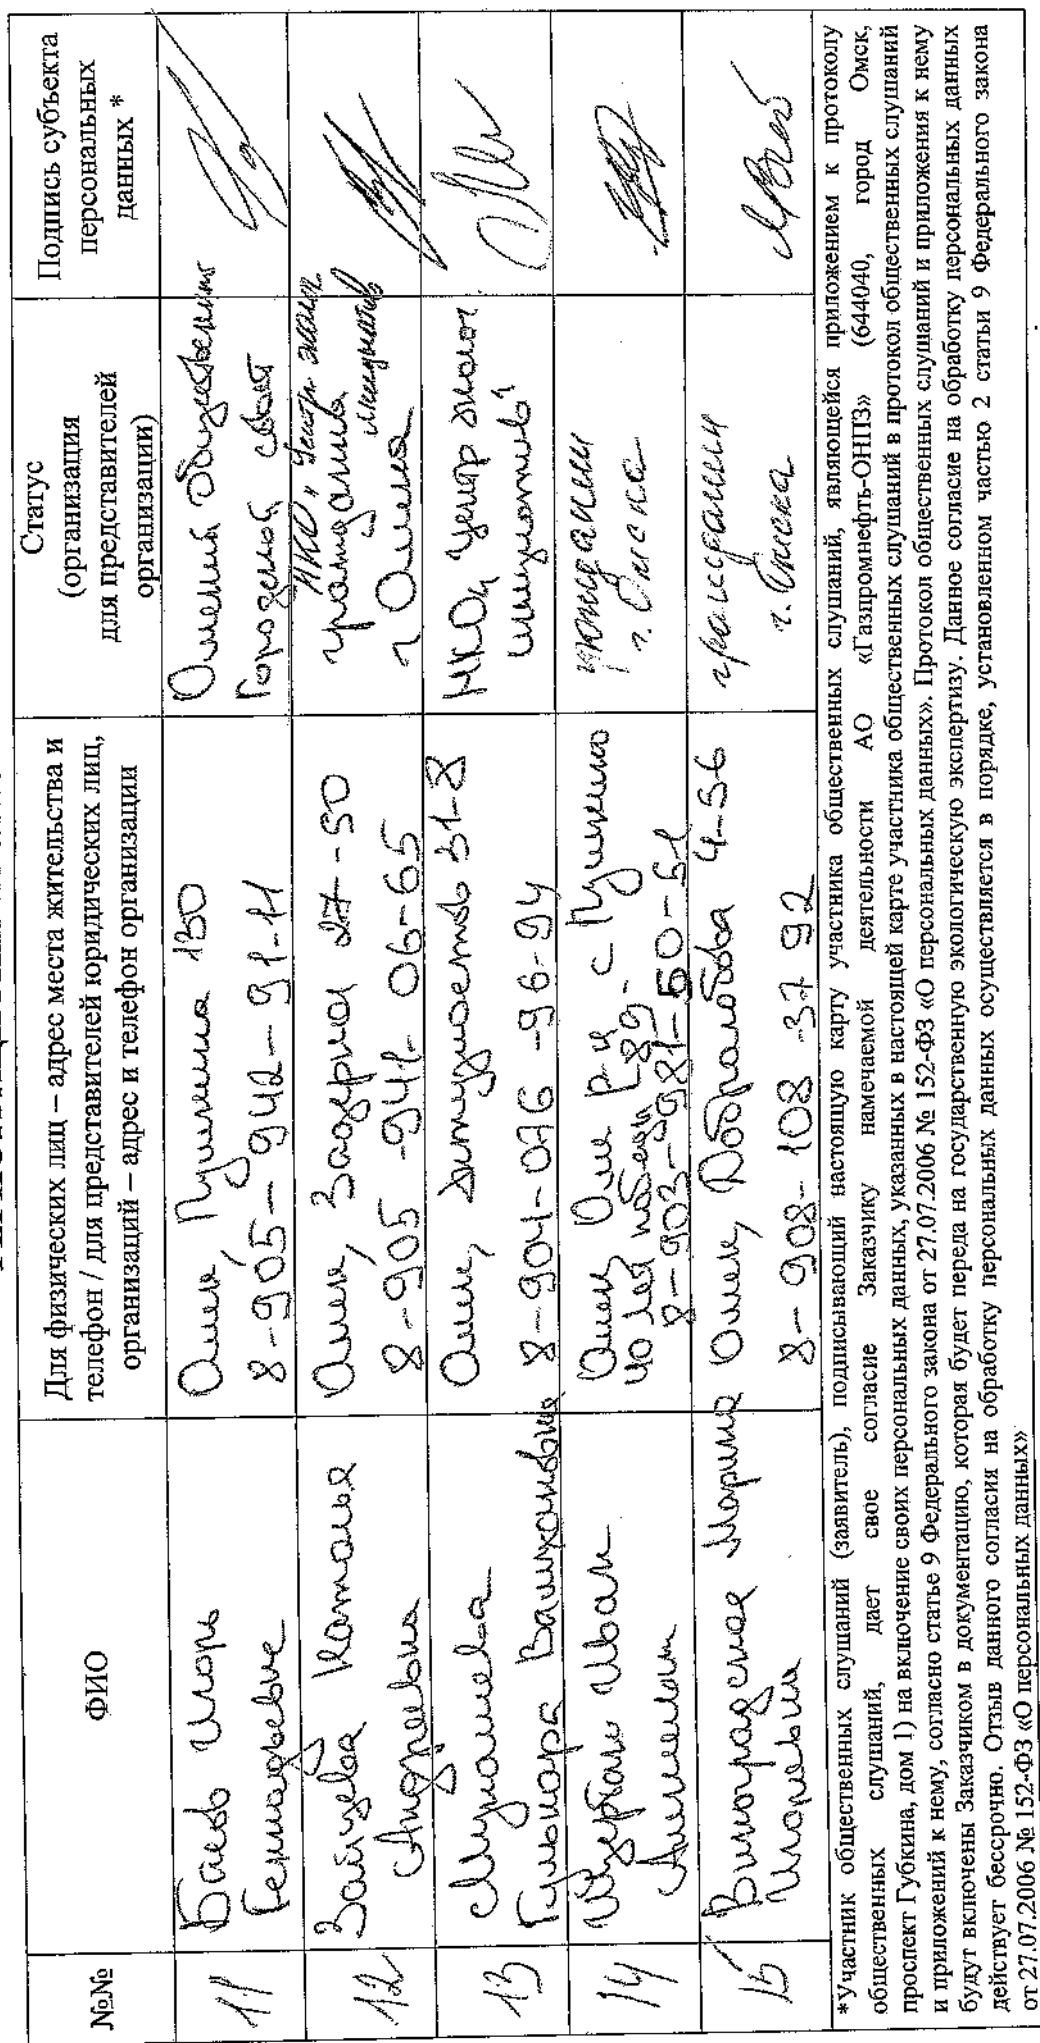 №№
ФИО
Для физических лиц – адрес места жительства и
телефон / для представителей юридических лиц,
организаций – адрес и телефон организации
Статус
(организация
для представителей
организации)
Подпись субъекта
персональных
данных *
11
Баев Игорь
Геннадьевич
Омск, Пушкина 130
8-905-942-91-11
Омский общественный
Городской совет
12
Зайцева Наталья
Андреевна
Омск, Задерная 27-50
8-905-941-06-65
НКО „Центр эколог
гражданка инициатив
г Омска
13
Гульнара
Омск, 31-8
8-904-076-96-94
НКО „Центр эколог
инициатив"
14
Иван
Омск, Омс р-н с Пушкино
40 лет победы 89-
8-903-981-50-51
гражданин
г. Омска
15
Виноградская Марина
Игоревна
Омск, Добролюбова 4-56
8-908-108-37 92
гражданин
г. Омска
*Участник общественных слушаний (заявитель), подписывающий настоящую карту участника общественных слушаний, являющейся приложением к протоколу
общественных слушаний, дает свое согласие Заказчику намечаемой деятельности АО «Газпромнефть-ОНПЗ» (644040, город Омск,
проспект Губкина, дом 1) на включение своих персональных данных, указанных в настоящей карте участника общественных слушаний в протокол общественных слушаний
и приложений к нему, согласно статье 9 Федерального закона от 27.07.2006 № 152-ФЗ «О персональных данных». Протокол общественных слушаний и приложения к нему
будут включены Заказчиком в документацию, которая будет переда на государственную экологическую экспертизу. Данное согласие на обработку персональных данных
действует бессрочно. Отзыв данного согласия на обработку персональных данных осуществляется в порядке, установленном частью 2 статьи 9 Федерального закона
от 27.07.2006 № 152-ФЗ «О персональных данных»